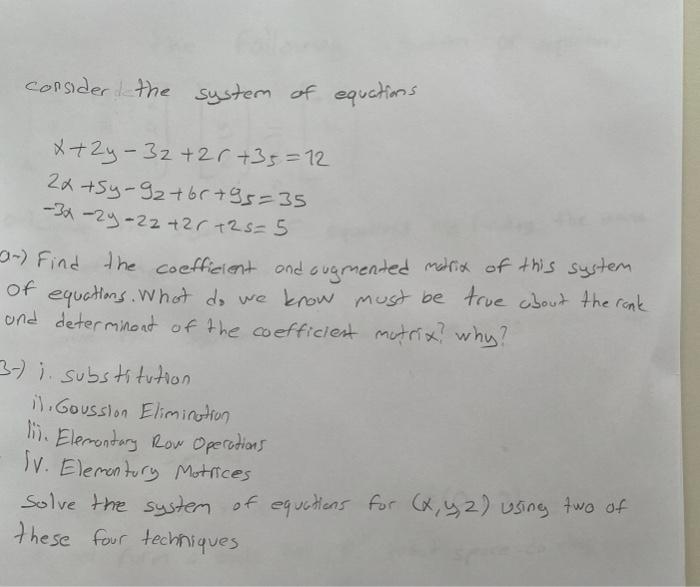 consider the system of equations
x+2y-3z+2r+3s=12
2x+5y-9z+6r+9s=35
-3x-2y-2z+2r+2s=5
a-) Find the coefficient and augmented matrix of this system
of equations. What do we know must be true about the rank
and determinant of the coefficient matrix? why?
3-) i. substitution
ii. Goussion Elimination
iii. Elemontary Row Operations
iv. Elementury Motrices
Solve the system of equctions for (x,y,z) using two of
these four techniques